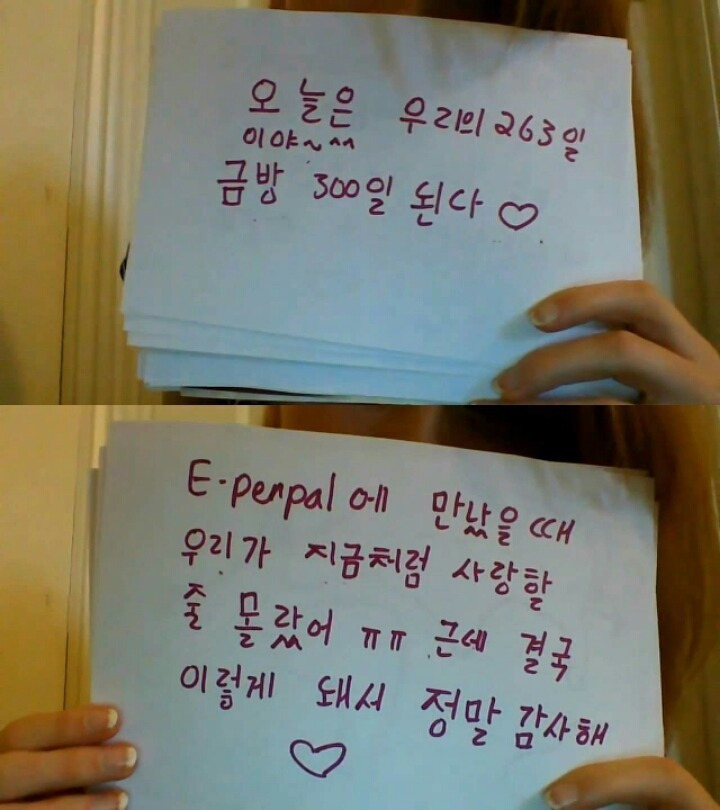 오늘은 우리의 263일
이야~^^
금방 300일 된다 ♡
E-penpal에 만났을 때
우리가 지금처럼 사랑할
줄 몰랐어 ㅠㅠ 근데 결국
이렇게 돼서 정말 감사해
♡